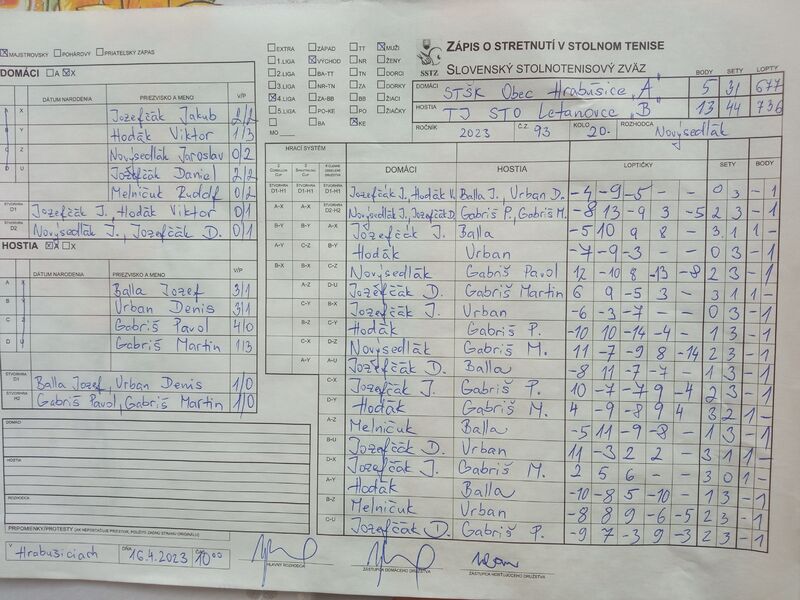 MAJSTROVSKÝ POHÁROVÝ PRIATEĽSKÝ ZÁPAS
DOMÁCI A X
DÁTUM NARODENIA PRIEZVISKO A MENO V/P
X Jozefčák Jakub 2/2
Y Hodák Viktor 1/3
Novýsedlák Jaroslav 0/2
Jozefčák Daniel 2/2
Melničuk Rudolf 0/2
ŠTVORHRA D1 Jozefčák J., Hodák Viktor 0/1
ŠTVORHRA D2 Novýsedlák J., Jozefčák D. 0/1
HOSTIA X
DÁTUM NARODENIA PRIEZVISKO A MENO V/P
A X Balla Jozef 3/1
B Y Urban Denis 3/1
C Z Gabriš Pavol 4/0
D U Gabriš Martin 1/3
ŠTVORHRA Balla Jozef, Urban Denis 1/0
ŠTVORHRA H2 Gabriš Pavol, Gabriš Martin 1/0
DOMÁCI
HOSTIA
ROZHODCA
PRIPOMENKY/PROTESTY (AK NEPOSTAČUJE PRIESTOR, POUŽITE ZADNÚ STRANU ORIGINÁLU)
V Hrabušiciach DŇA 16.4.2023 10:00
HLAVNÝ ROZHODCA
ZÁSTUPCA DOMÁCEHO DRUŽSTVA
ZÁSTUPCA HOSŤUJÚCEHO DRUŽSTVA
EXTRA ZÁPAD TT MUŽI
1.LIGA VÝCHOD NR ŽENY
2.LIGA BA-TT TN DORCI
3.LIGA NR-TN ZA DORKY
4.LIGA ZA-BB BB ŽIACI
5.LIGA PO-KE PO ŽIAČKY
MO BA KE
SSTZ
ZÁPIS O STRETNUTÍ V STOLNOM TENISE
SLOVENSKÝ STOLNOTENISOVÝ ZVÄZ
BODY SETY LOPTY
DOMÁCI STŠK Obec Hrabušice "A" 5 31 677
HOSTIA TJ STO Letanovce "B" 13 44 736
ROČNÍK 2023 Č.Z. 93 KOLO 20. ROZHODCA Novýsedlák
HRACÍ SYSTÉM DOMÁCI HOSTIA LOPTIČKY SETY BODY
Jozefčák J., Hodák V. Balla J., Urban D. -4 -9 -5 - - 0 3 - 1
Novýsedlák J., Jozefčák D. Gabriš P., Gabriš M. -8 13 -9 3 -5 2 3 - 1
Jozefčák J. Balla -5 10 9 8 - 3 1 1 -
Hodák Urban -7 -9 -3 - - 0 3 - 1
Novýsedlák Gabriš Pavol 12 -10 8 -13 -8 2 3 - 1
Jozefčák D. Gabriš Martin 6 9 -5 3 - 3 1 1 -
Jozefčák J. Urban -6 -3 -7 - - 0 3 - 1
Hodák Gabriš P. -10 10 -14 -4 - 1 3 - 1
Novýsedlák Gabriš M. 11 -7 -9 8 -14 2 3 - 1
Jozefčák D. Balla -8 11 -7 -7 - 1 3 - 1
Jozefčák J. Gabriš P. 10 -7 -7 9 -4 2 3 - 1
Hodák Gabriš M. 4 -9 -8 9 4 3 2 1 -
Melničuk Balla -5 11 -9 -8 - 1 3 - 1
Jozefčák D. Urban 11 -3 2 2 - 3 1 1 -
Jozefčák J. Gabriš M. 2 5 6 - - 3 0 1 -
Hodák Balla -10 -8 5 -10 - 1 3 - 1
Melničuk Urban -8 8 9 -6 -5 2 3 - 1
Jozefčák D. Gabriš P. -9 7 -3 9 -3 2 3 - 1